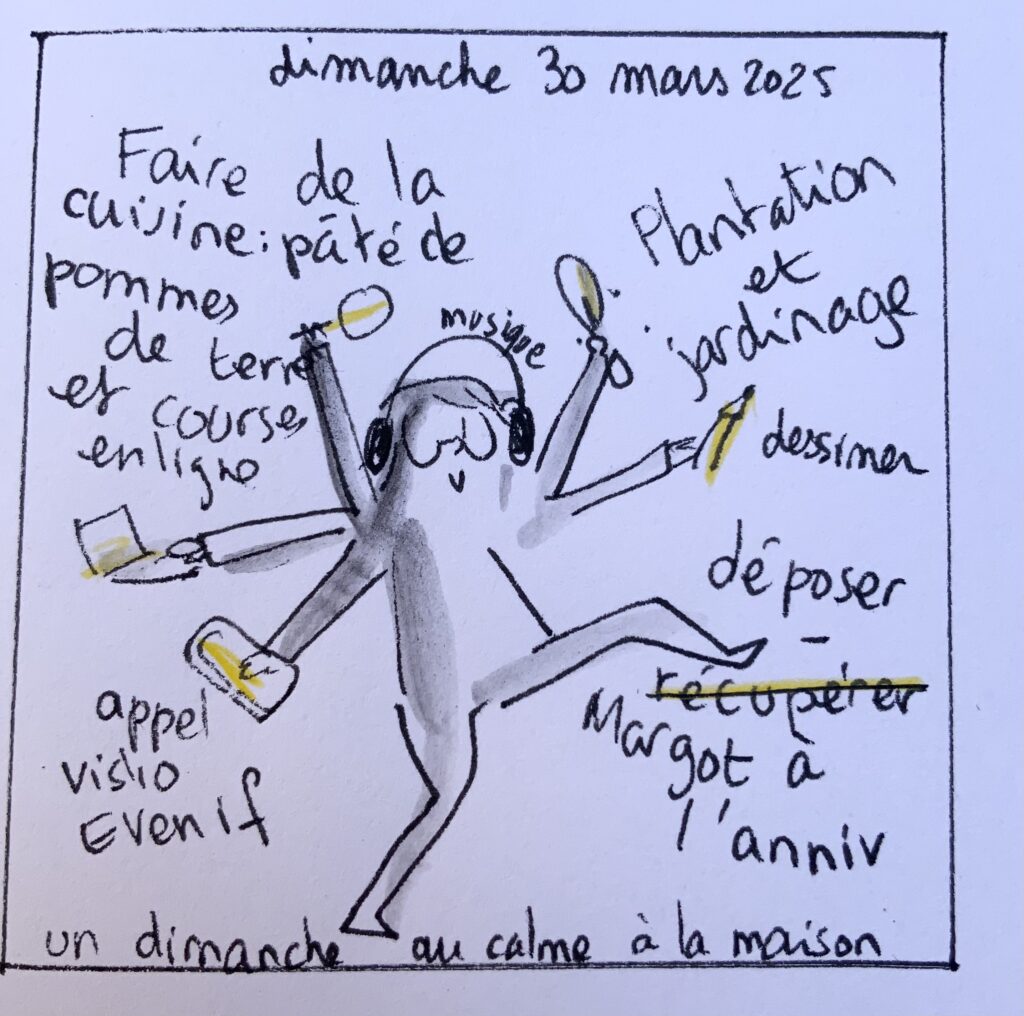 dimanche 30 mars 2025
Faire de la
cuisine : pâté de
pommes
de terre
et courses
en ligne
musique
Plantation
et
jardinage
dessiner
déposer
-
récupérer
Margot à
l'anniv
appel
visio
Evenif
un dimanche au calme à la maison